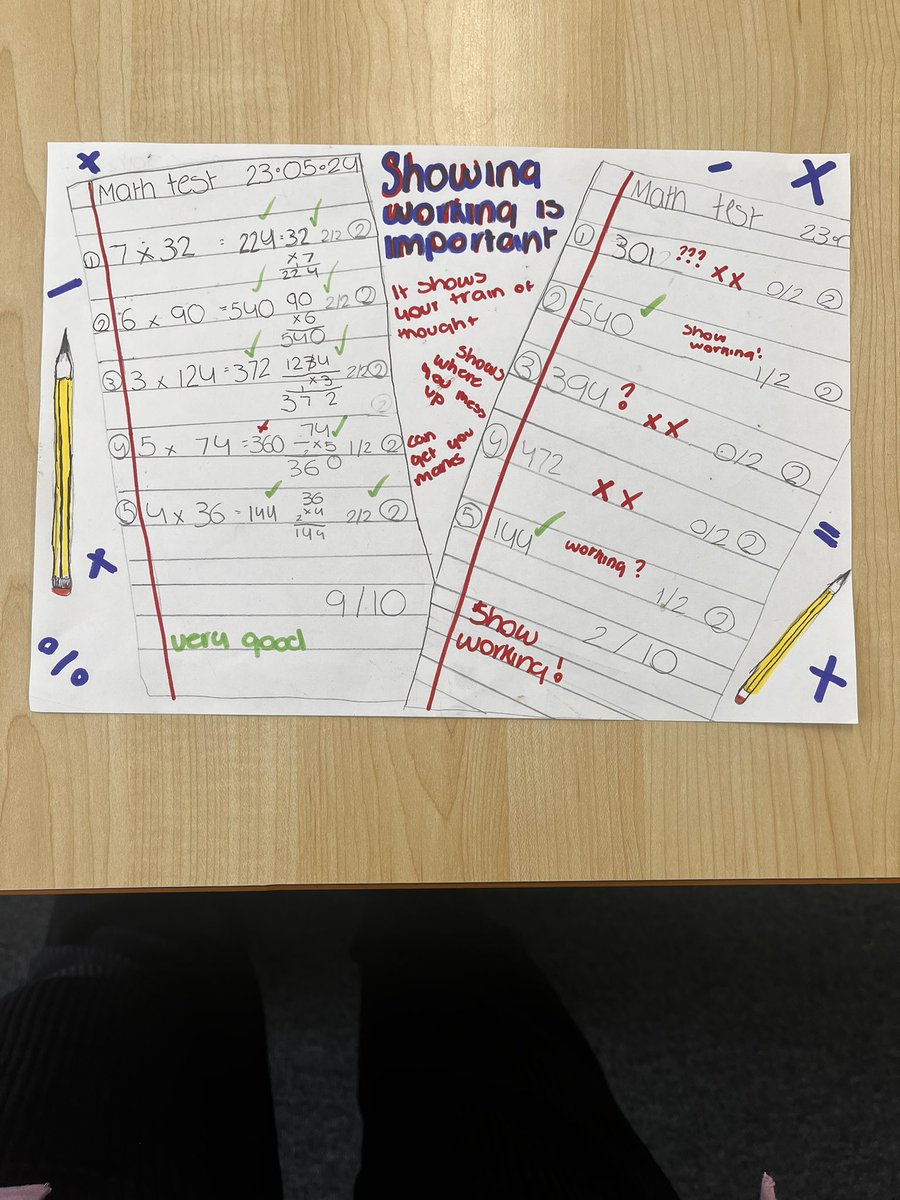 Math test 23.05.24
① 7 x 32 = 224 32 2/2 ②
x 7
224
② 6 x 90 = 540 90 2/2 ②
x 6
540
③ 3 x 124 = 372 124 2/2 ②
x 3
372
④ 5 x 74 = 360 74 1/2 ②
x 5
360
⑤ 4 x 36 = 144 36 2/2 ②
x 4
144
9/10
very good
Showing
working is
important
It shows
your train of
thought
shows
where
you mess
up
can
get you
marks
Math test 23.
① 3012 ??? x x 0/2 ②
② 540
show
working!
1/2 ②
③ 394 ? x x 0/2 ②
④ 472 x x 0/2 ②
⑤ 144 working?
1/2 ②
2/10
Show
working!